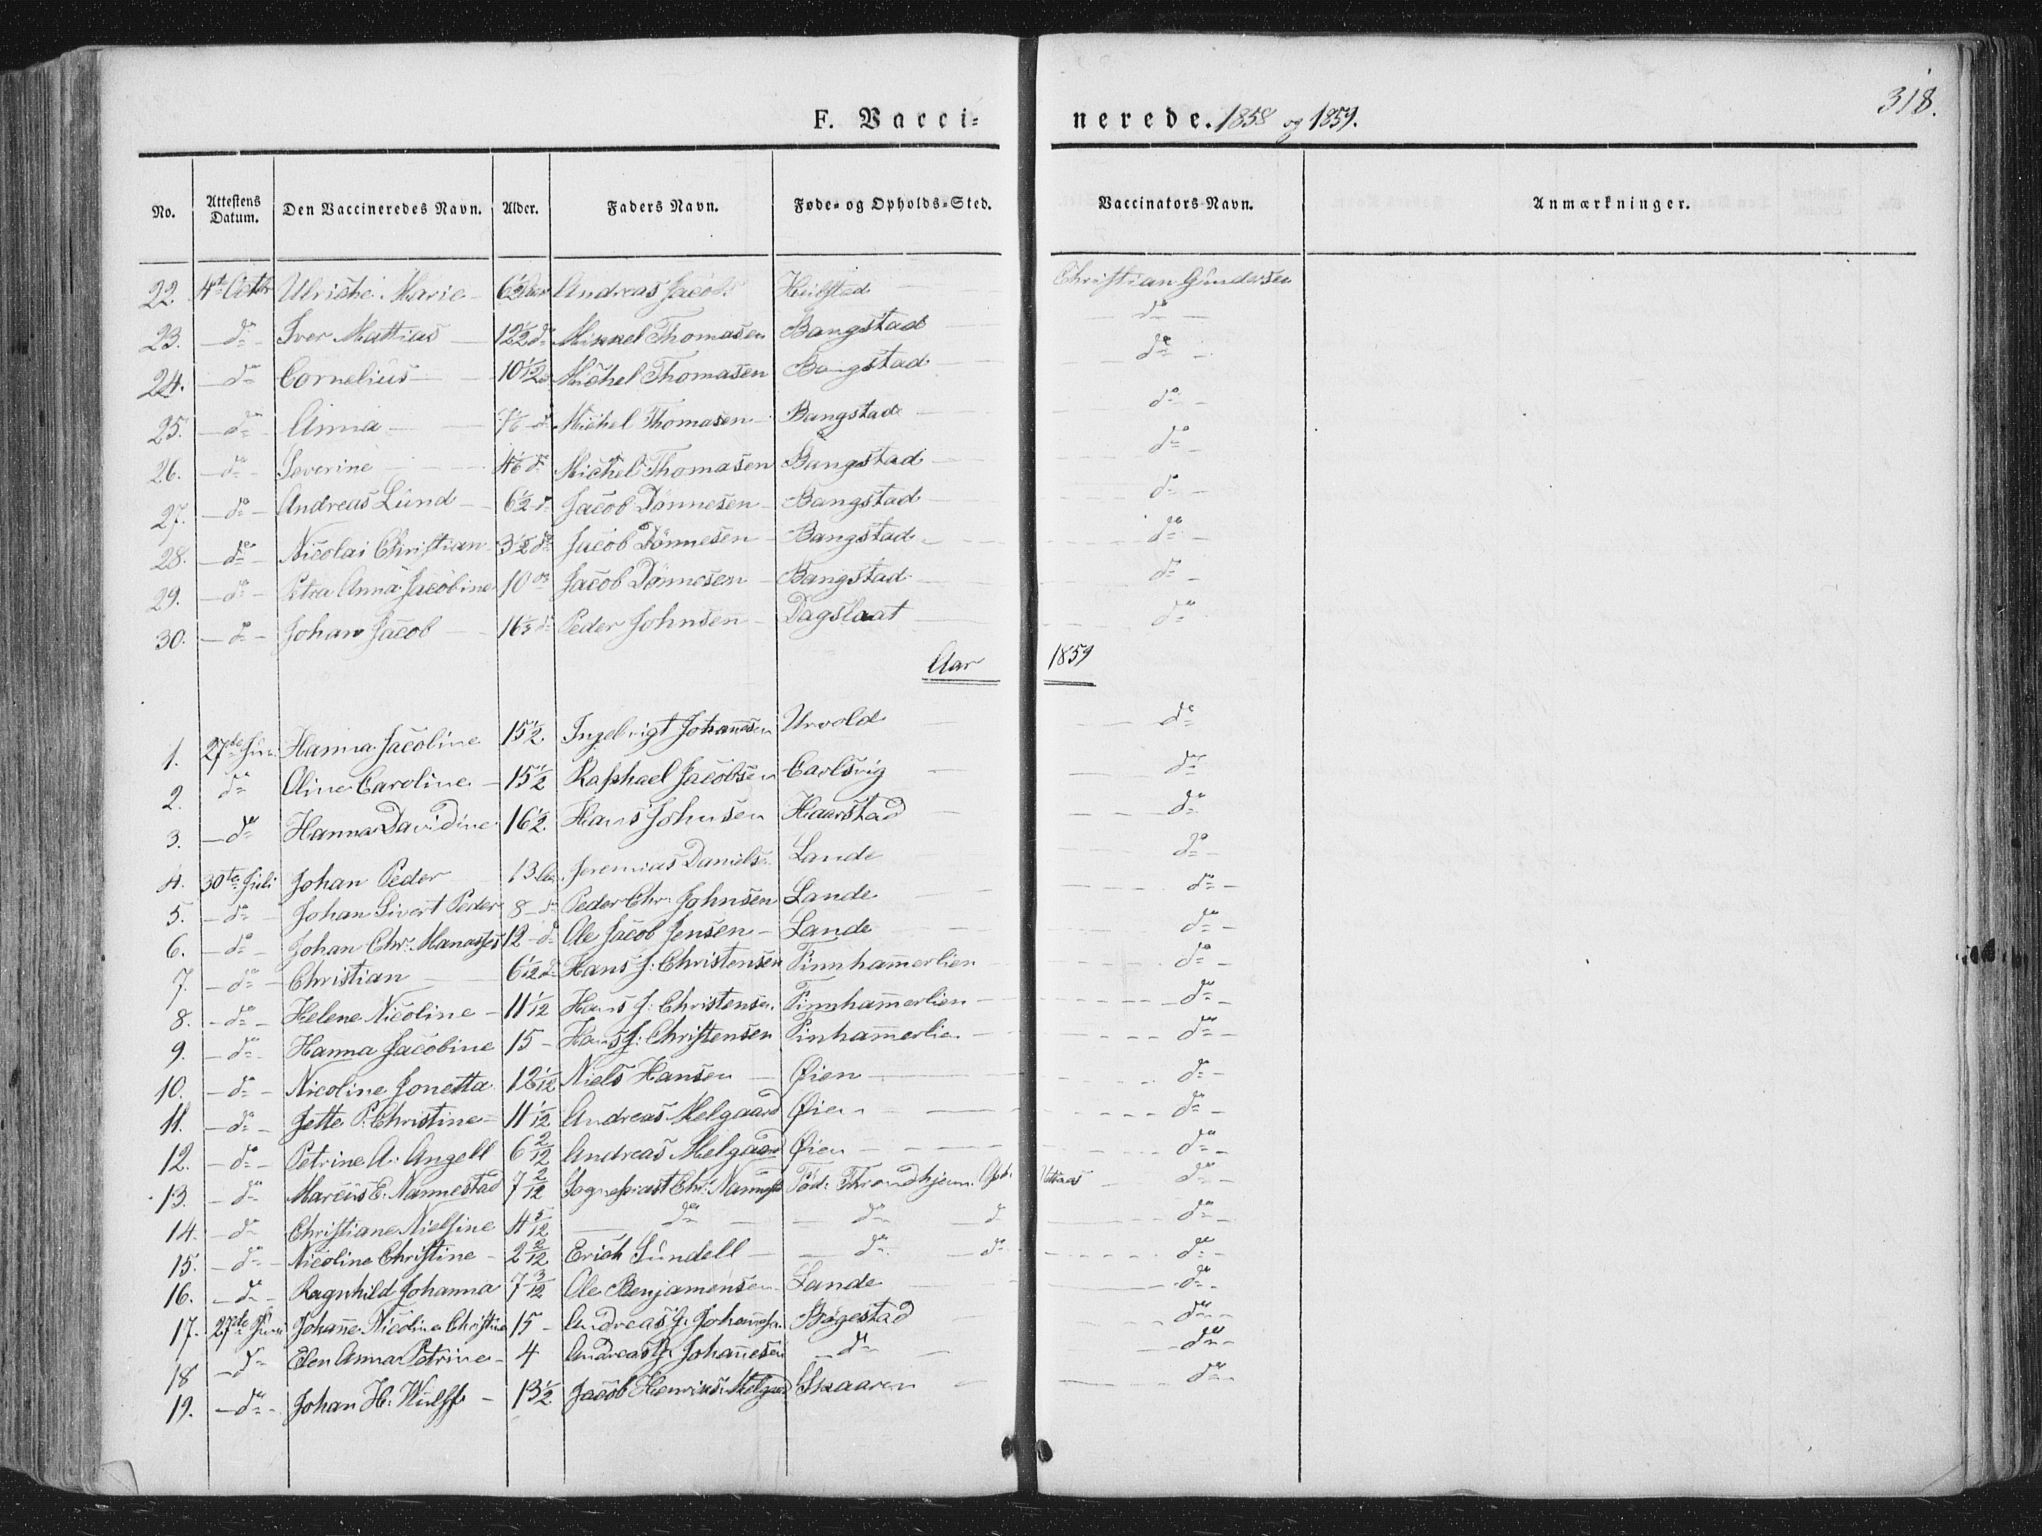 318.
F. Vaccinerede. 1858 og 1859.
No. Attestens Datum. Den Vaccineredes Navn. Alder. Faders Navn. Føde- og Opholds-Sted. Vaccinators Navn. Anmærkninger.
22. 4de Octbr Ulriche Marie 6½ Andreas Jacobs. Christian Gundersen
23. do Iver Mattias 12½ do Mikkel Thomasen Bangstad do
24. do Cornelius 10 1/12 Michel Thomasen Bangstad do
25. do Anna do Michel Thomasen Bangstad do
26. do Severine do Michel Thomasen Bangstad do
27. do Andreas Lund 6½ do Jacob Dønnesen Bangstad do
28. do Nicolai Christian 3½ do Jacob Dønnesen Bangstad do
29. do Petra Anna Jacobine 10 do Jacob Dønnesen Bangstad do
30. do Johan Jacob do Peder Johnsen Dagslaat do
Aar 1859
1. 27de Juni Hanna Jacoline 15½ Ingebrigt Johannesen Urvold do
2. do Oline Caroline 15½ Raphael Jacobsen Carlsvig do
3. do Hanna Davidine 16½ Hans Johnsen Haarstad do
4. 30te Juli Johan Peder 13 Jeremias Daniels. Lande do
5. do Johan Sivert Peder 8 do Peder Chr. Johnsen Lande do
6. do Johan Chr. Manasses 12 do Ole Jacob Jensen Lande do
7. do Christian 6 1/12 do Hans J. Christensen Finnhammerlien do
8. do Helene Nicoline 11 1/12 Hans J. Christensen Finnhammerlien do
9. do Hanna Jacobine 15 Hans J. Christensen Finhammerlien do
10. do Nicoline Jonetta 12 1/12 Niels Hansen Øien do
11. do Jette P. Christine 11 1/12 Andreas Melgaard Øien do
12. do Petrine A. Angell 6 2/12 Andreas Melgaard Øien do
13. do Marcus E. Nannestad 7 2/12 Sognepræst Chr. Nannest Fød: Throndhjem. Oph: do
14. do Christiane Nielsine 4 5/12 do do do do
15. do Nicoline Christine 2 2/12 Erich Sundell do do do
16. do Ragnhild Johanna 7 3/12 Ole Benjamensen Lande do
17. 27de Juni Johanne Nicoline Christine 15 Andreas J. Johannesen Bøgestad do
18 do Elen Anna Petrine 4 Andreas J. Johannesen do do
19. do Johan H. Wulff 13½ Jacob Henriks. Melgaard Skaaren do